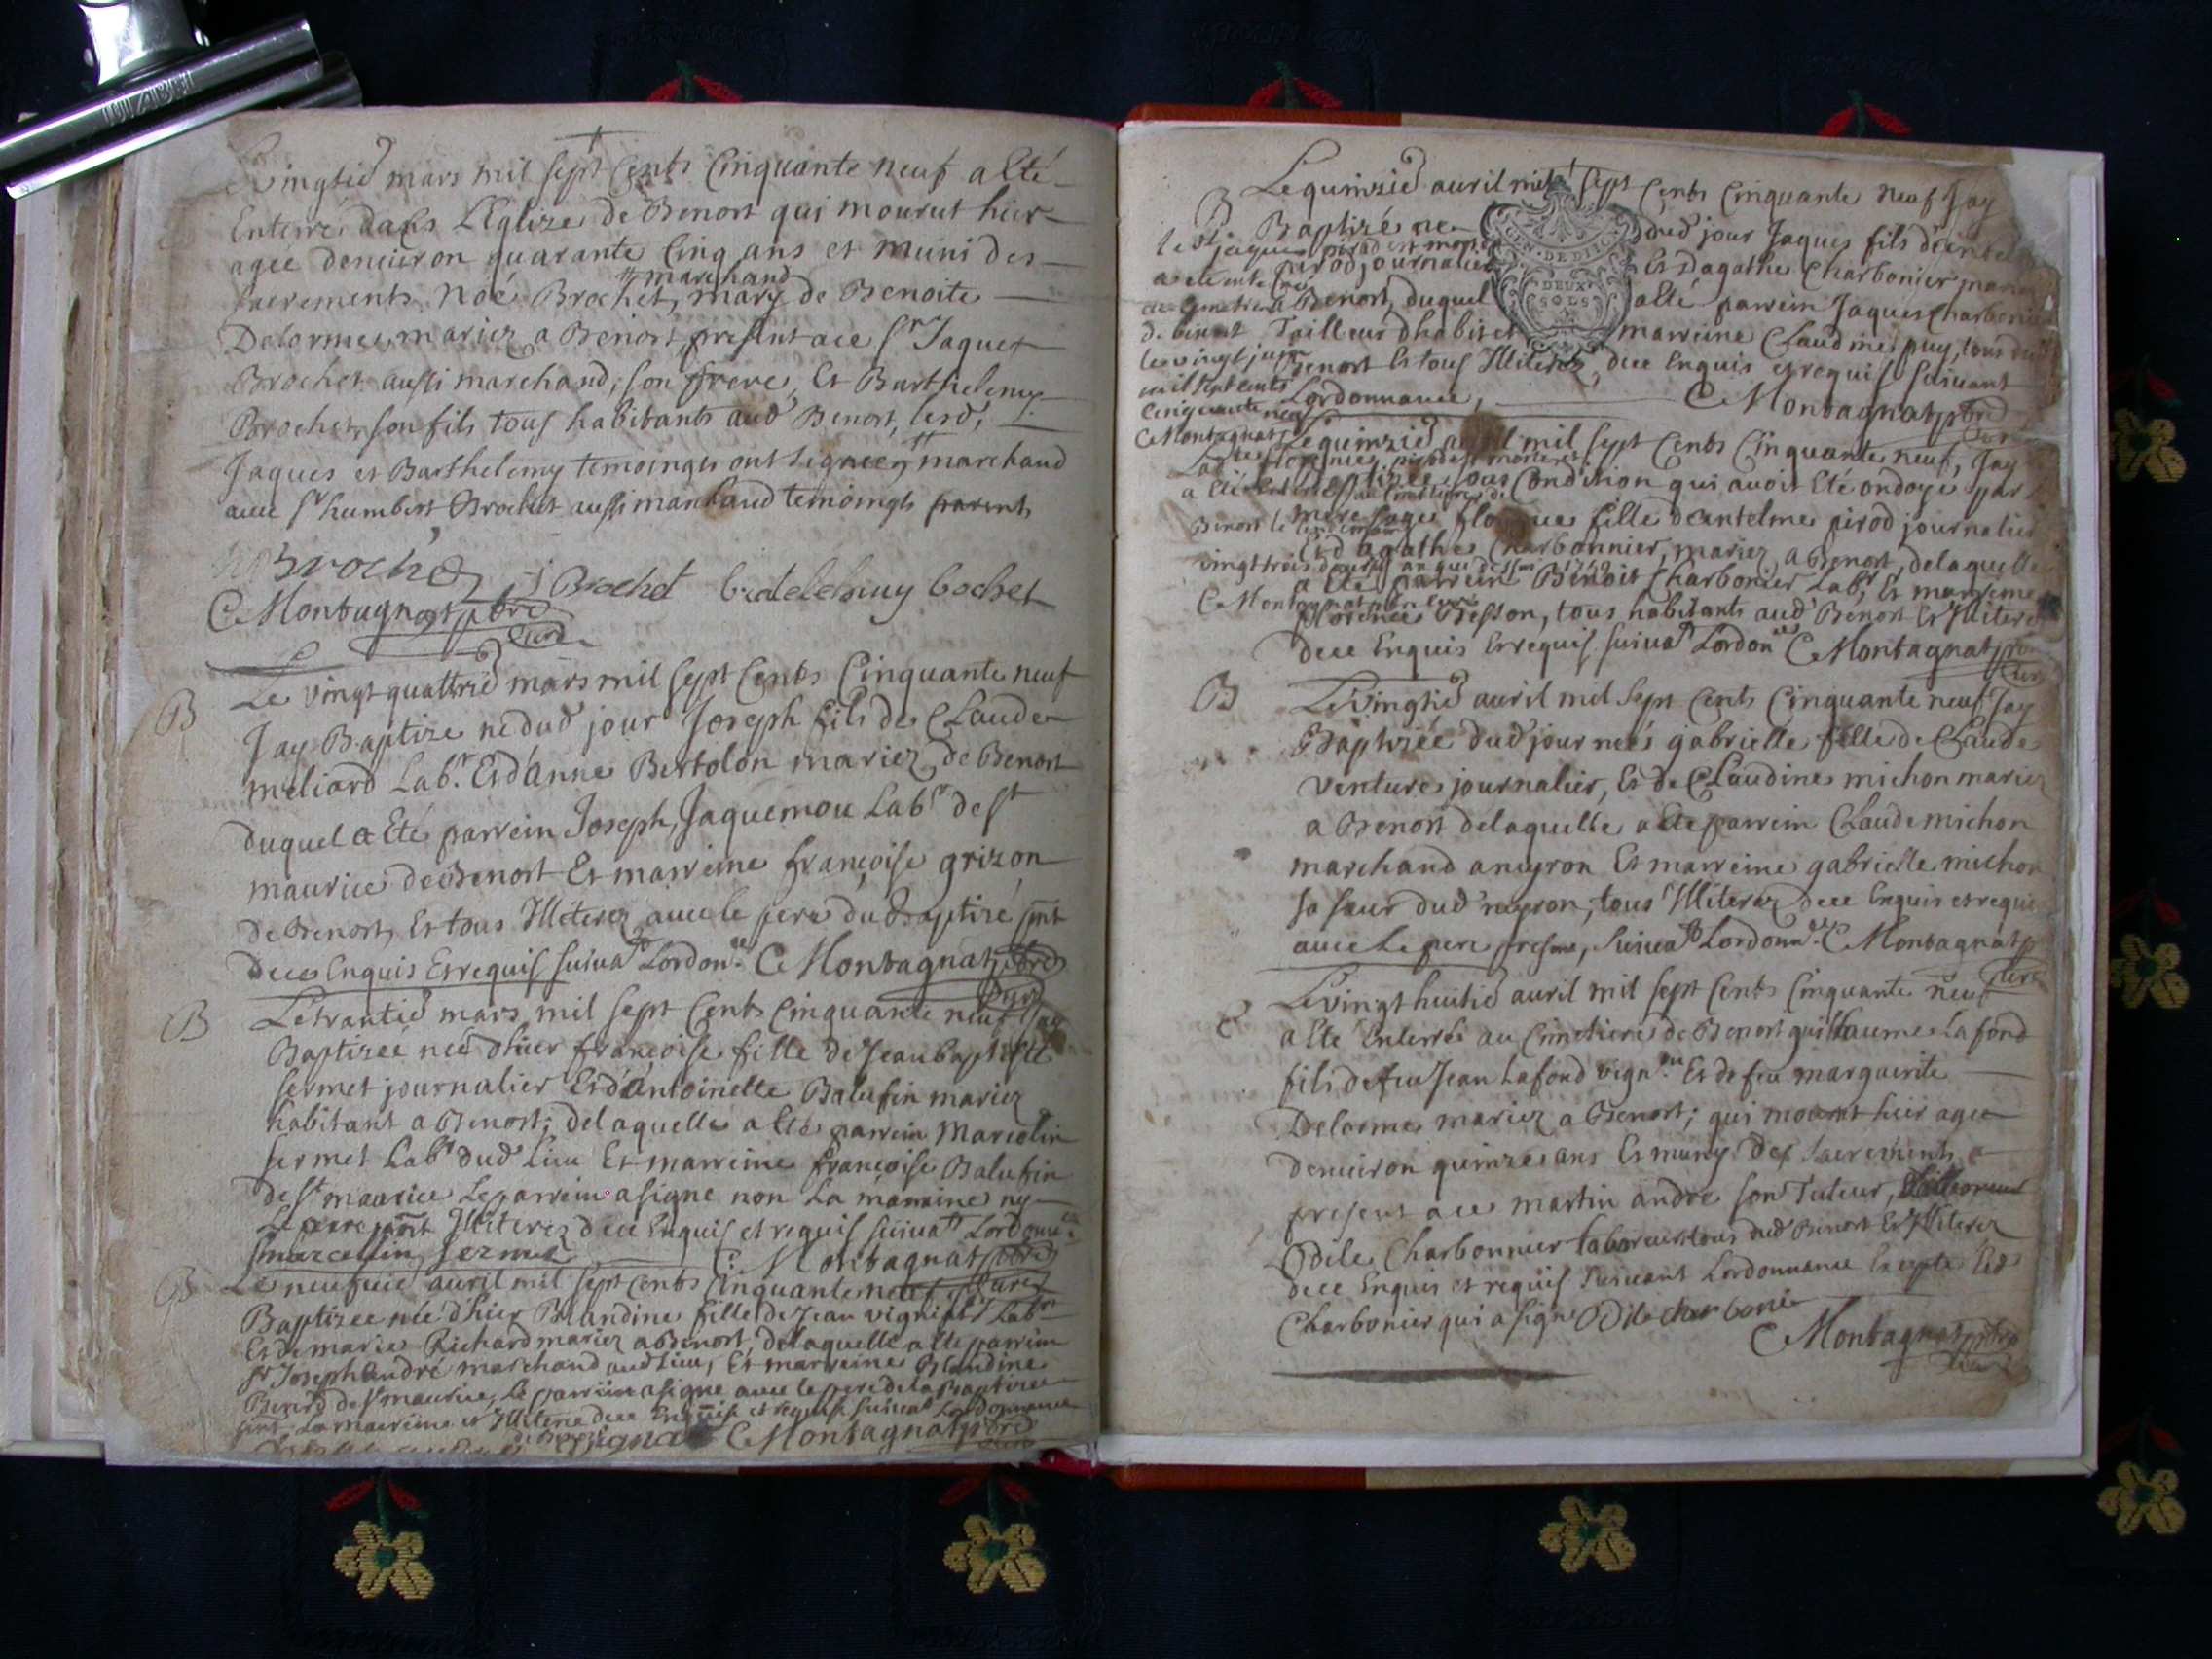 Vingtie mars mil sept cents cinquante neuf a Eté
Enterré dans L'Eglize de Benost qui mourut hier
agée denuiron quarante Cinq ans et muni des
sacrements Noé Brochet, mary de Benoite
# marchand
Delorme mariez a Benost present a ce Sr Jaques
Brochet aussi marchand, son frere, Et Barthelemy
Brochet son fils tous habitants aud Benost, lesd,
Jaques et Barthelemy temoings ont signez # marchand
auec Sr humbert Brochet aussi marchand temoings parents
Brochet J Brochet bartelelemy bochet
C Montagnat pbre
Curé
B Le vingt quattrie mars mil sept Cents Cinquante neuf
Jay Baptize ne dud jour Joseph fils de Claude
meliard Labr. Et d'anne Bertolon mariez de Benost
duquel a Eté parrein Joseph Jaquemou Labr de St
maurice de Benost Et marreine françoise grizon
de Benost, Et tous Illiterez auec le pere du Baptizé pnt
dece Enquis Et requis suiuat Lordonce C Montagnat pbre
Curé
B Le trantie mars mil sept Cents Cinquante neuf Jay
Baptizée née d'hier françoise fille de Jean baptiste
sermet journalier Et d'antoinette Balufin mariez
habitant a Benost; delaquelle a Eté parrein Marcelin
sermet Labr dud Lieu Et marreine françoise Balufin
de St maurice Le parrein a signe non La marraine ny
Le pere pnt Illiterez dece Enquis et requis suiuat Lordonnce
marcellin sermet C Montagnat pbre
Curé
B Le neufuie auril mil sept Cents Cinquante neuf Jay
Baptizee née d'hier Blandine fille de Jean vignient Labr
Et de marie Richard mariez a Benost, delaquelle a Ete parrein
Sr Joseph andré marchand aud Lieu, Et marreine Blandine
Benod de St maurice, Le parrein a signe auec le pere de la Baptizee
pnt La marreine et Illiteree dece Enquise et requise suiuat Lordonnance
C Montagnat pbre
B Le quinzie auril mil sept Cents Cinquante neuf Jay
Baptizé ne dud jour Jaques fils d'antelme
pirod journalier Et Dagathe Charbonier mariez
a Benost, duquel a Eté parrein Jaques Charbonier
Tailleur dhabits et marreine Claudine puy, tous dud
Benost Et tous Illiterez, dece Enquis et requis suiuant
Lordonnance, C Montagnat pbre
Curé
le sd jaques pirod est mort
a ete enterre
au Cimetiere
de benost
le vingt juin
mil sept cents
Cinquante neuf
C Montagnat
GEN. DE DIJON
DEUX
SOLS
Le quinzie auril mil sept Cents Cinquante neuf, Jay
Baptizée sous Condition qui auoit Eté ondoyé par la
mere sage florence fille dantelme pirod journalier
Et d'agathe Charbonnier, mariez a Benost, delaquelle
a Eté parrein Benoit Charbonier Labr, Et marreine
florence Besson, tous habitants aud Benost Et Illiterez
dece Enquis Et requis suiuat Lordonce C Montagnat pbre
Curé
Lade florence pirod est morte et
a Eté Enterrée au Cimetiere de
Benost le
vingt trois
C Montagnat pbre curé
B Le vingtie auril mil sept Cents Cinquante neuf Jay
Baptizée dud jour née gabrielle fille de Claude
venture journalier, Et de Claudine michon mariez
a Benost delaquelle a Ete parrein Claude michon
marchand a neyron Et marreine gabrielle michon
sa sœur dud neyron, tous Illiterez dece Enquis et requis
auec Le pere present, suiuat Lordonnce C Montagnat p
Curé
Le vingt huitie auril mil sept Cents Cinquante neuf
a Eté Enterré au Cimetiere de Benost guillaume Lafond
fils de feu Jean Lafond vignon Et de feu marguerite
Delorme mariez a Benost; qui mourut hier agee
denuiron quinze ans Et muny des sacrements
present a ce martin andré son Tuteur,
Odile Charbonnier Laboreur tous dud Benost Et Illiterez
dece Enquis et requis suiuant Lordonnance Excepte Led
Charbonier qui a signé Odile charbonie
C Montagnat pbre
Curé